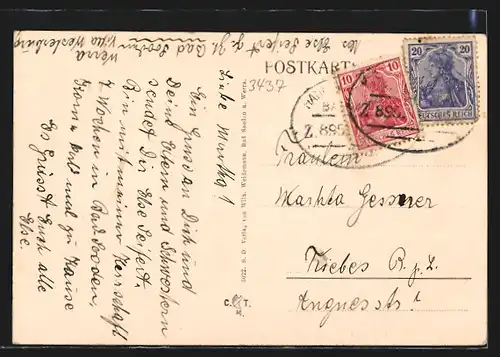 Abs. Else Seifert z. Zt. Bad Sooden
Werra
Villa Westerburg
POSTKARTE
3437
10
10
20
20
DEUTSCHES REICH
Z. 895
Z. 895
Liebe Martha!
Ein Gruss an Dich und
Deine Eltern und Schwestern
sendet Dir Else Seifert.
Bin mit meiner Herrschaft
7 Wochen in Bad Sooden,
Komm mal zu Hause
Es grüsst Euch alle
Else.
Fräulein
Martha Gessner
Kiebes
Agnesstr. 1
3922 S. D. Verlag von Wilh. Weidemann, Bad Sooden a. Werra.
C. T.